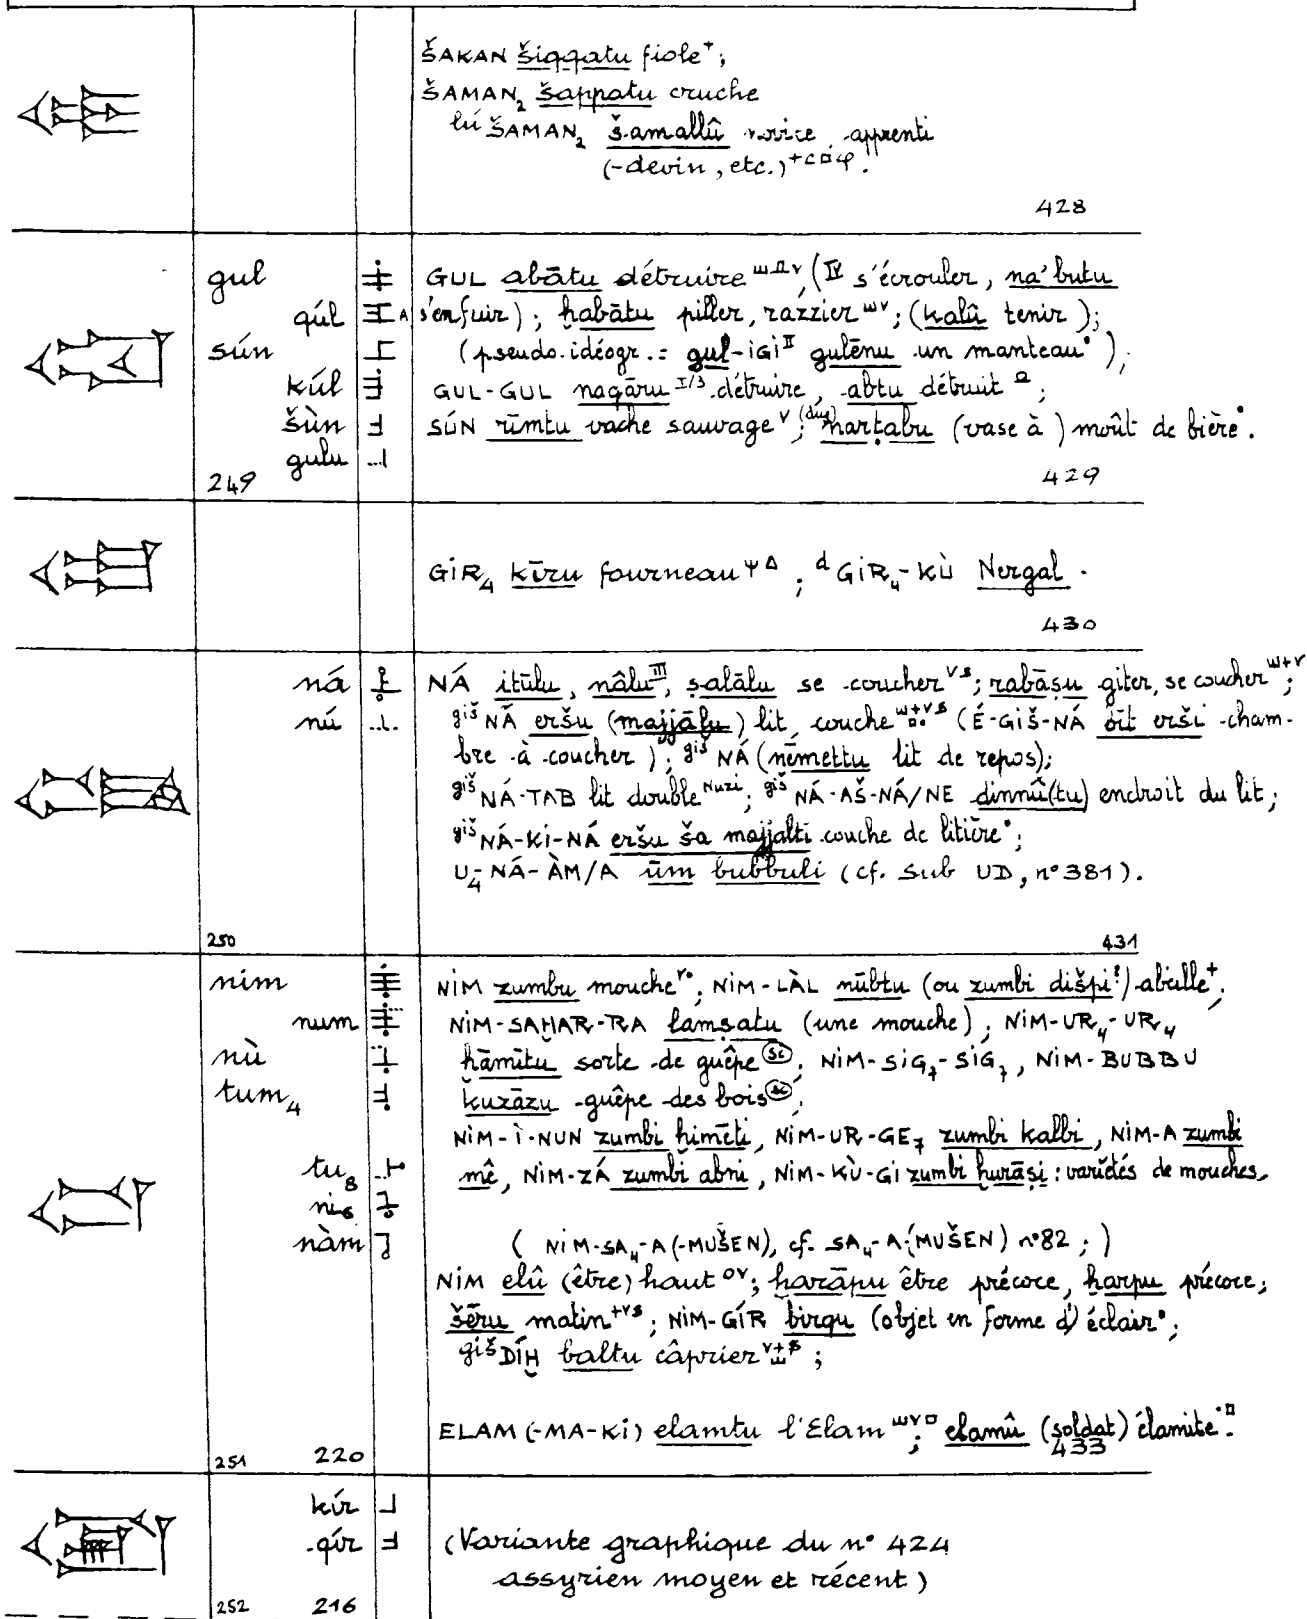 ŠAKAN šiqqatu fiole⁺;
ŠAMAN₂ šappatu cruche
lú ŠAMAN₂ šamallû novice, apprenti
(-devin, etc.)
428
gul
qúl
sún
kúl
šùn
gulu
249
GUL abātu détruire (IV s'écrouler, na'butu
s'enfuir); ḫabātu piller, razzier; (kalû tenir);
(pseudo-idéogr. := gul-IGI^II gulēnu un manteau);
GUL-GUL naqāru I/3 détruire, abtu détruit;
SÚN rīmtu vache sauvage; (dug) narṭabu (vase à) moût de bière.
429
GIR₄ kīru fourneau; ᵈGIR₄-KÙ Nergal.
430
ná
nú
250
NÁ itūlu, nâlu III, ṣalālu se coucher; rabāṣu giter, se coucher;
giš NÁ eršu (majjālu) lit, couche (É-GIŠ-NÁ bīt erši cham-
bre à coucher); giš NÁ (nēmettu lit de repos);
giš NÁ-TAB lit double Nuzi; giš NÁ-AŠ-NÁ/NE dinnû(tu) endroit du lit;
giš NÁ-KI-NÁ eršu ša majjalti couche de litière;
U₄-NÁ-ÀM/A ūm bubbuli (cf. sub UD, n° 381).
431
nim
num
nù
tum₄
tu₈
ni₆
nàm
251 220
NIM zumbu mouche; NIM-LÀL nūbtu (ou zumbi dišpi!) abeille⁺;
NIM-SAḪAR-RA lamṣatu (une mouche); NIM-UR₄-UR₄
ḫāmītu sorte de guêpe; NIM-SIG₇-SIG₇, NIM-BUBBU
kuzāzu guêpe des bois;
NIM-Ì-NUN zumbi ḫimēti, NIM-UR-GE₇ zumbi kalbi, NIM-A zumbi
mê, NIM-ZÁ zumbi abni, NIM-KÙ-GI zumbi ḫurāṣi: variétés de mouches,
(NIM-SA₄-A(-MUŠEN), cf. SA₄-A-(MUŠEN) n° 82;)
NIM elû (être) haut; ḫarāpu être précoce, ḫarpu précoce;
šēru matin; NIM-GÍR birqu (objet en forme d')éclair;
giš DÍḪ baltu câprier;
ELAM (-MA-KI) elamtu l'Elam; elamû (soldat) élamite.
433
kír
qír
252 216
(Variante graphique du n° 424
assyrien moyen et récent)